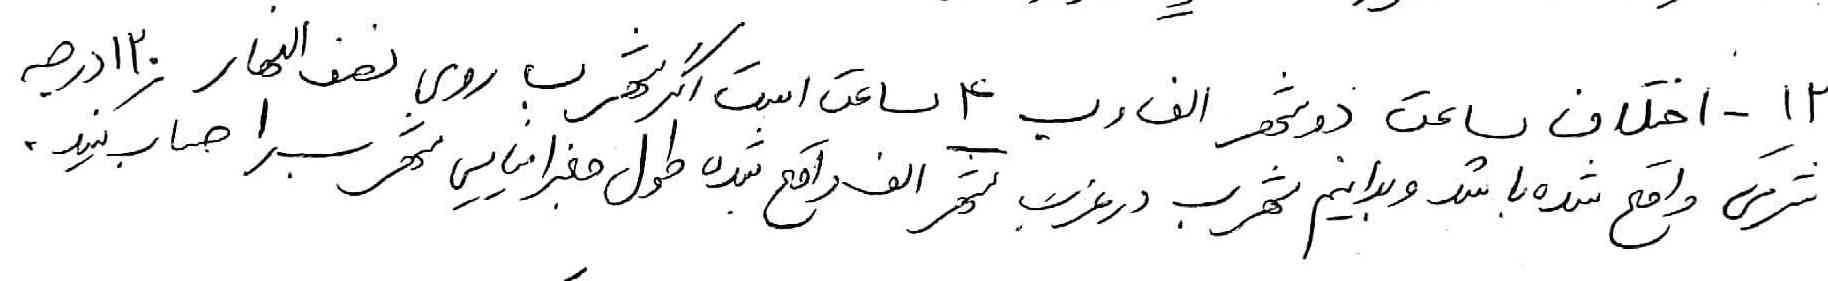 ۱۲ - اختلاف ساعت دو شهر الف و ب ۴ ساعت است اگر شهر ب روی نصف النهار ۱۲۰ درجه
شرقی واقع شده باشد و بدانیم شهر ب در غرب شهر الف واقع شده طول جغرافیایی شهر ب را حساب کنید.